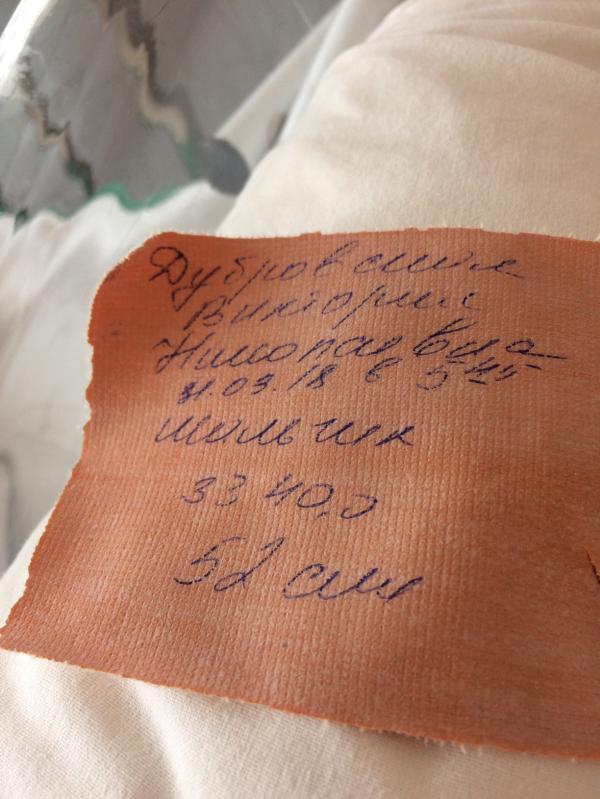 Дубровская
Виктория
Николаевна
31.03.18 в 5 45
мальчик
3340,0
52 см